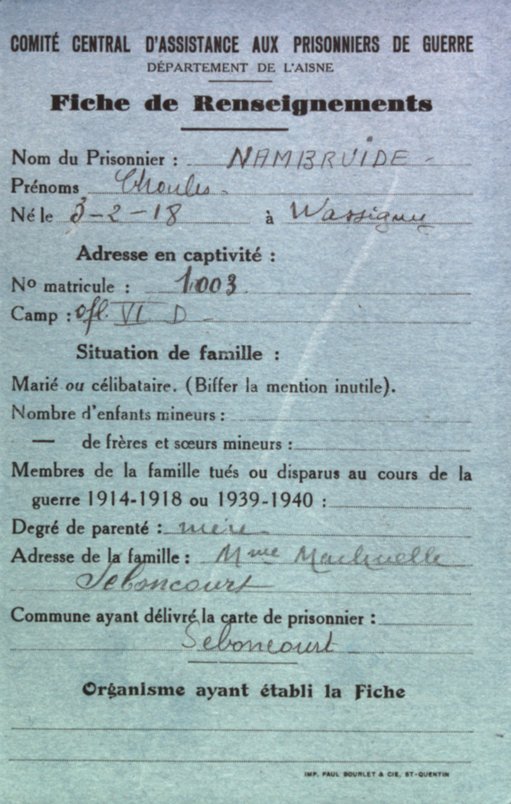 COMITÉ CENTRAL D'ASSISTANCE AUX PRISONNIERS DE GUERRE
DÉPARTEMENT DE L'AISNE
Fiche de Renseignements
Nom du Prisonnier : NAMBRUIDE
Prénoms
Né le 3-2-18 à Wassigny
Adresse en captivité :
No matricule : 1003
Camp : Ofl. VI D
Situation de famille :
Marié ou célibataire. (Biffer la mention inutile).
Nombre d'enfants mineurs :
— de frères et sœurs mineurs :
Membres de la famille tués ou disparus au cours de la
guerre 1914-1918 ou 1939-1940 :
Degré de parenté : mère
Adresse de la famille : Mme
Seboncourt
Commune ayant délivré la carte de prisonnier :
Seboncourt
Organisme ayant établi la Fiche
IMP. PAUL BOURLET & CIE, ST-QUENTIN